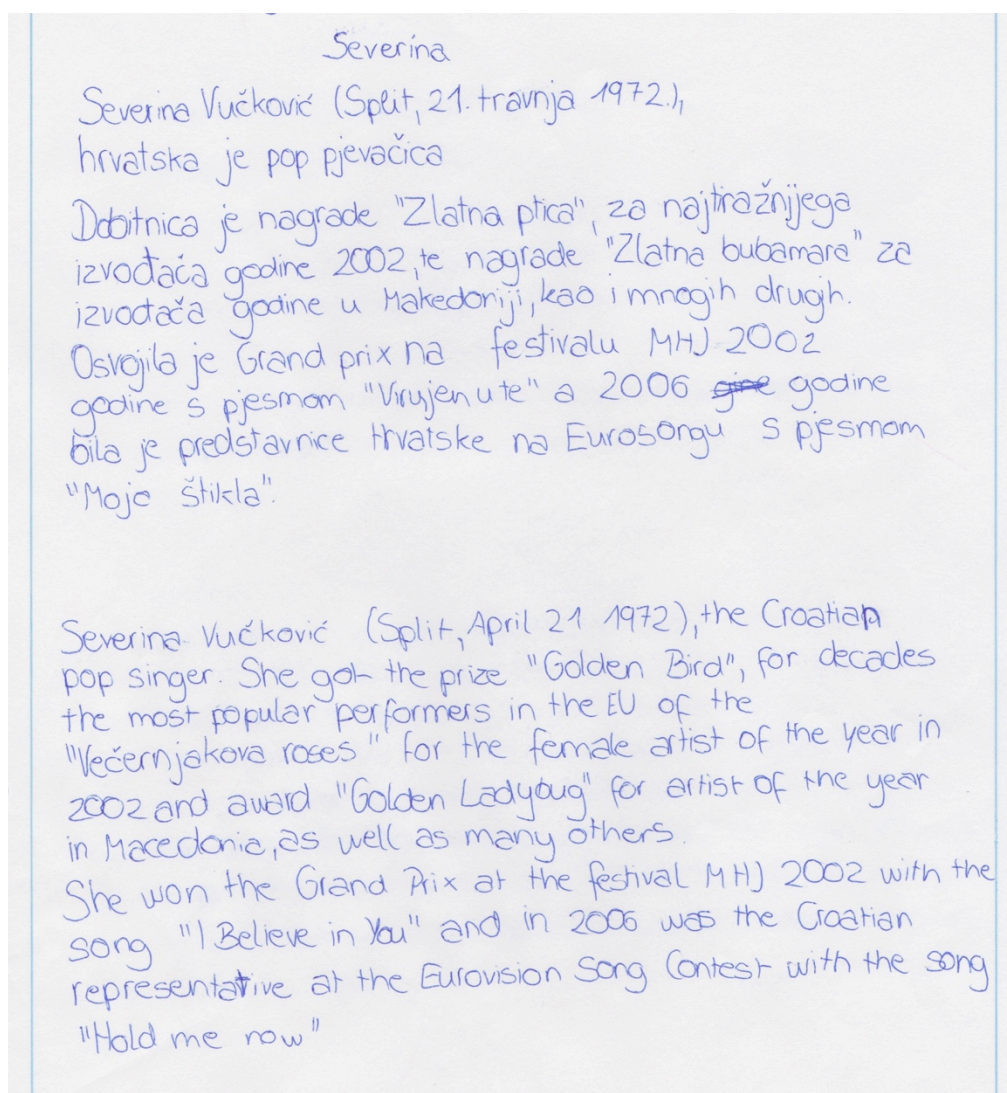 Severina
Severina Vučković (Split, 21. travnja 1972.),
hrvatska je pop pjevačica
Dobitnica je nagrade "Zlatna ptica", za najtiražnijega
izvođaća godine 2002, te nagrade "Zlatna bubamara" za
izvođača godine u Makedoniji, kao i mnogih drugih.
Osvojila je Grand prix na festivalu MHJ 2002
godine s pjesmom "Virujen u te" a 2006 godine
bila je predstavnice Hrvatske na Eurosongu s pjesmom
"Moja štikla".
Severina Vučković (Split, April 21 1972), the Croatian
pop singer. She got the prize "Golden Bird", for decades
the most popular performers in the EU of the
"Večernjakova roses" for the female artist of the year in
2002 and award "Golden Ladybug" for artist of the year
in Macedonia, as well as many others.
She won the Grand Prix at the festival MHJ 2002 with the
song "I Believe in You" and in 2006 was the Croatian
representative at the Eurovision Song Contest with the song
"Hold me now"